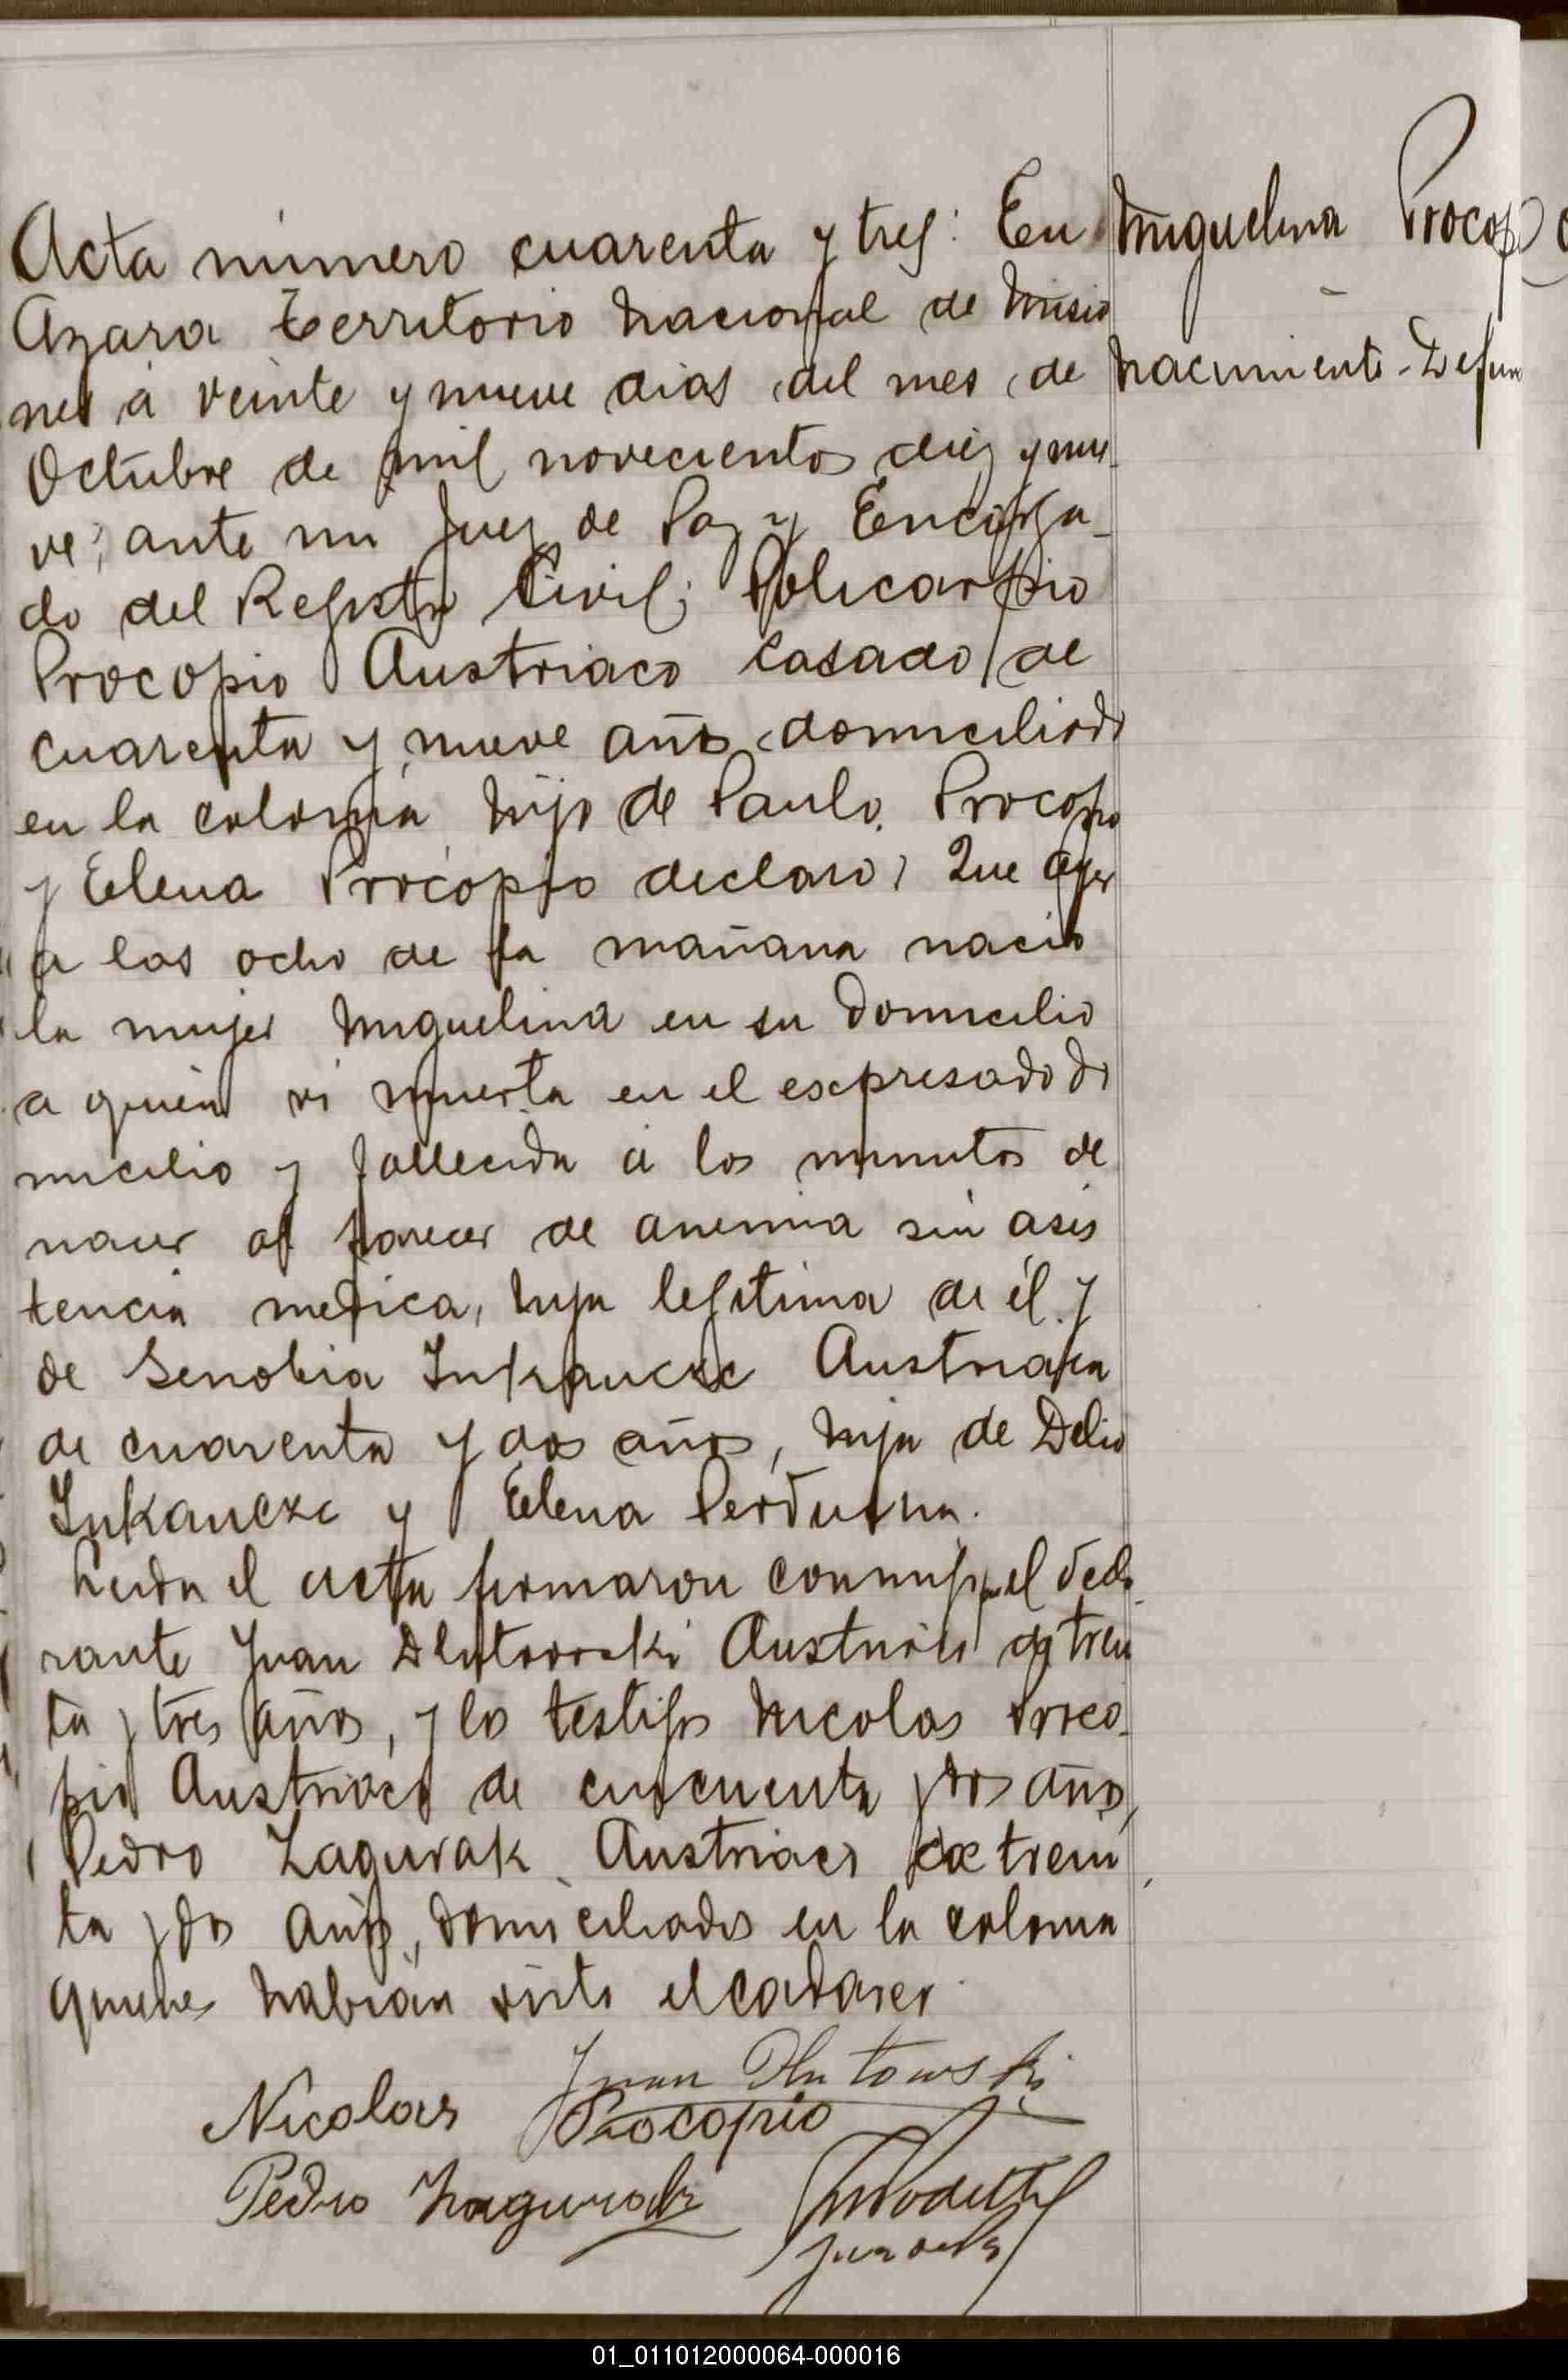 Acta número cuarenta y tres: En
Azara territorio Nacional de Misio
nes á veinte y nueve dias del mes de
Octubre de mil novecientos diez y nue-
ve; ante mi Juez de Paz y Encarga-
do del Registro Civil; Policarpio
Procopio Austriaco casado de
cuarenta y nueve años domiciliado
en la colonia hijo de Paulo Procopio
y Elena Procopio declaró; Que ayer
a las ocho de la mañana nació
la mujer Miguelina en su domicilio
a quien vi muerta en el expresado do
micilio y fallecida á los minutos de
nacer al parecer de anemia sin asis
tencia medica, hija legitima de él y
de Senobia Inkancze Austriaca
de cuarenta y dos años, hija de Delio
Inkancze y Elena
Leida el acta firmaron conmigo el decla-
rante Juan Dlutowski Austriaco de trein
ta y tres años, y los testigos Nicolas Proco-
pio Austriaco de cincuenta y dos años,
Pedro Zagurak Austriaco de trein
ta y dos años, domiciliados en la colonia
quienes habian visto el cadaver.
Miguelina Procopio
-
Nacimiento-Defun
Juan Dlutowski
Nicolas Procopio
Pedro Zagurak
Juez de Paz
01_011012000064-000016